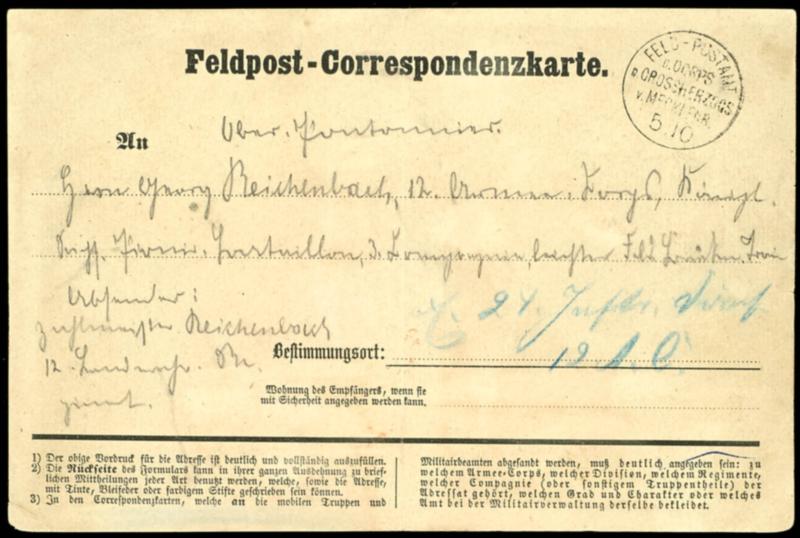 Feldpost-Correspondenzkarte.
FELD-POSTAMT
D. CORPS
D. GROSSHERZOGS
v. MECKLENB.
5.10
An Ober-Pontonnier.
Herrn Georg Reichenbach, 12. Armee-Corps, Königl.
Sächs. Pionir-Bataillon, 3. Compagnie, leichter Feld Brücken Train
Absender:
Zahlmeister Reichenbach
12. Landwehr-Re-
giment.
E. 24. Inftr. Divis
12 A. C.
Bestimmungsort:
Wohnung des Empfängers, wenn sie
mit Sicherheit angegeben werden kann.
1) Der obige Vordruck für die Adresse ist deutlich und vollständig auszufüllen.
2) Die Rückseite des Formulars kann in ihrer ganzen Ausdehnung zu brief-
lichen Mittheilungen jeder Art benutzt werden, welche, sowie die Adresse,
mit Tinte, Bleifeder oder farbigem Stifte geschrieben sein können.
3) In den Correspondenzkarten, welche an die mobilen Truppen und
Militairbeamten abgesandt werden, muß deutlich angegeben sein: zu
welchem Armee-Corps, welcher Division, welchem Regimente,
welcher Compagnie (oder sonstigem Truppentheile) der
Adressat gehört, welchen Grad und Charakter oder welches
Amt bei der Militairverwaltung derselbe bekleidet.